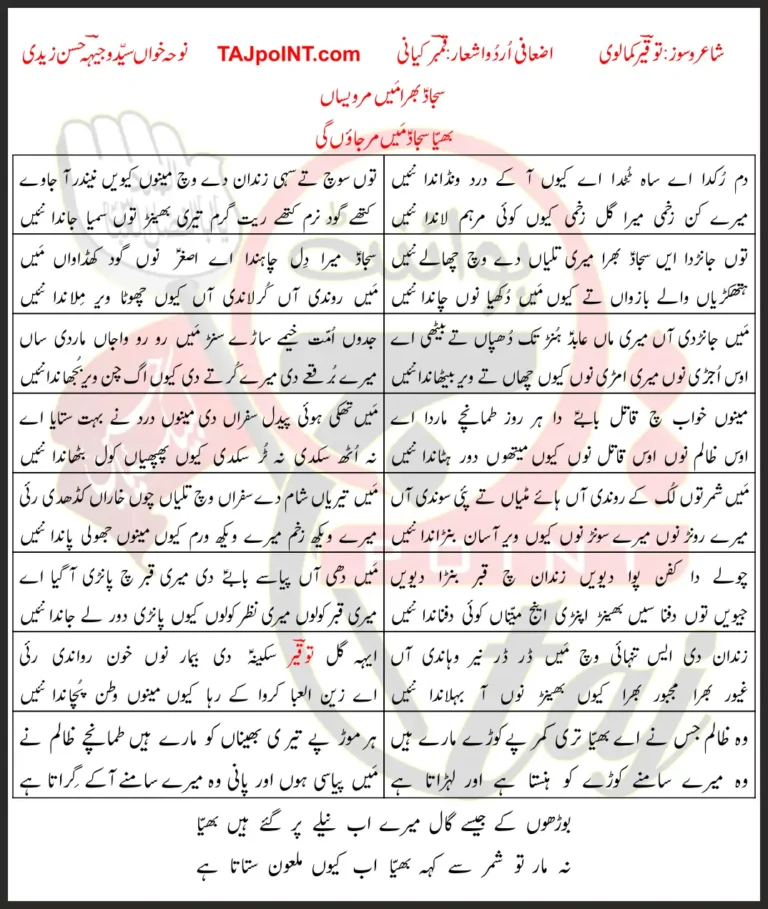 شاعر و سوز: توقیر کمالوی اضافی اُردو اشعار: قمبر کیانی TAJpoINT.com نوحہ خواں سیّد وجیہہ حسن زیدی
سجادؑ بھرا مَیں مر ویساں
بھیّا سجادؑ مَیں مر جاؤں گی
دم رُکدا اے ساہ ٹُحدا اے کیوں آ کے درد ونڈاندا نئیں
میرے کن زخمی میرا گل زخمی کیوں کوئی مرہم لاندا نئیں
توں سوچ تے سہی زندان دے وچ مینوں کیویں نیندر آ جاوے
کتھے گود نرم کتھے ریت گرم تیری بھینڑ توں سمیا جاندا نئیں
توں جانڑدا ایں سجادؑ بھرا میری تلیاں دے وچ چھالے نئیں
ہتھکڑیاں والے بازواں تے کیوں مَیں دُکھیا نوں چاندا نئیں
سجادؑ میرا دِل چاہندا اے اصغرؑ نوں گود کھڈاواں مَیں
مَیں روندی آں کُرلاندی آں کیوں چھوٹا ویر مِلاندا نئیں
مَیں جانڑدی آں میری ماں عابدؑ ہُنڑ تک دُھپاں تے بیٹھی اے
اوس اُجڑی نوں میری امڑی نوں کیوں چھاں تے ویر بیٹھاندا نئیں
جدوں اُمّت خیمے ساڑے سنڑ مَیں رو رو واجاں ماردی ساں
میرے بُرقعے دی میرے کُرتے دی کیوں اگ چن ویر بُجھاندا نئیں
مینوں خواب چ قاتل بابےؑ دا ہر روز طمانچے ماردا اے
اوس ظالم نوں اوس قاتل نوں کیوں میتھوں دور ہٹاندا نئیں
مَیں تھکی ہوئی پیدل سفراں دی مینوں درد نے بہت ستایا اے
نہ اُٹھ سکدی نہ ٹُر سکدی کیوں پھپھیاں کول بٹھاندا نئیں
مَیں شمر توں لُک کے روندی آں ہائے مٹیاں تے پئی سوندی آں
میرے رونڑ نوں میرے سونڑ نوں کیوں ویر آسان بنڑاندا نئیں
مَیں تیریاں شام دے سفراں وچ تلیاں چوں خاراں کڈھدی رئی
میرے ویکھ زخم میرے ویکھ ورم کیوں مینوں جھولی پاندا نئیں
چولے دا کفن پوا دیویں زندان چ قبر بنڑا دیویں
جیویں توں دفنا سیں بھینڑ اپنڑی اینج میتّاں کوئی دفناندا نئیں
مَیں دھی آں پیاسے بابےؑ دی میری قبر چ پانڑی آ گیا اے
میری قبر کولوں میری نظر کولوں کیوں پانڑی دور لے جاندا نئیں
زندان دی ایس تنہائی وچ مَیں ڈر ڈر نیر وہاندی آں
غیور بھرا مجبور بھرا کیوں بھینڑ نوں آ بہلاندا نئیں
ایہہ گل توقیر سکینہؑ دی بیمار نوں خون رواندی رئی
اے زین العبا کروا کے رہا کیوں مینوں وطن پُچاندا نئیں
وہ ظالم جس نے اے بھیّا تری کمر پے کوڑے مارے ہیں
وہ میرے سامنے کوڑے کو ہنستا ہے اور لہراتا ہے
ہر موڑ پے تیری بھیناں کو مارے ہیں طمانچے ظالم نے
مَیں پیاسی ہوں اور پانی وہ میرے سامنے آ کے گِراتا ہے
بوڑھوں کے جیسے گال میرے اب نیلے پر گئے ہیں بھیّا
نہ مار تو شمر سے کہہ بھیّا اب کیوں ملعون ستاتا ہے